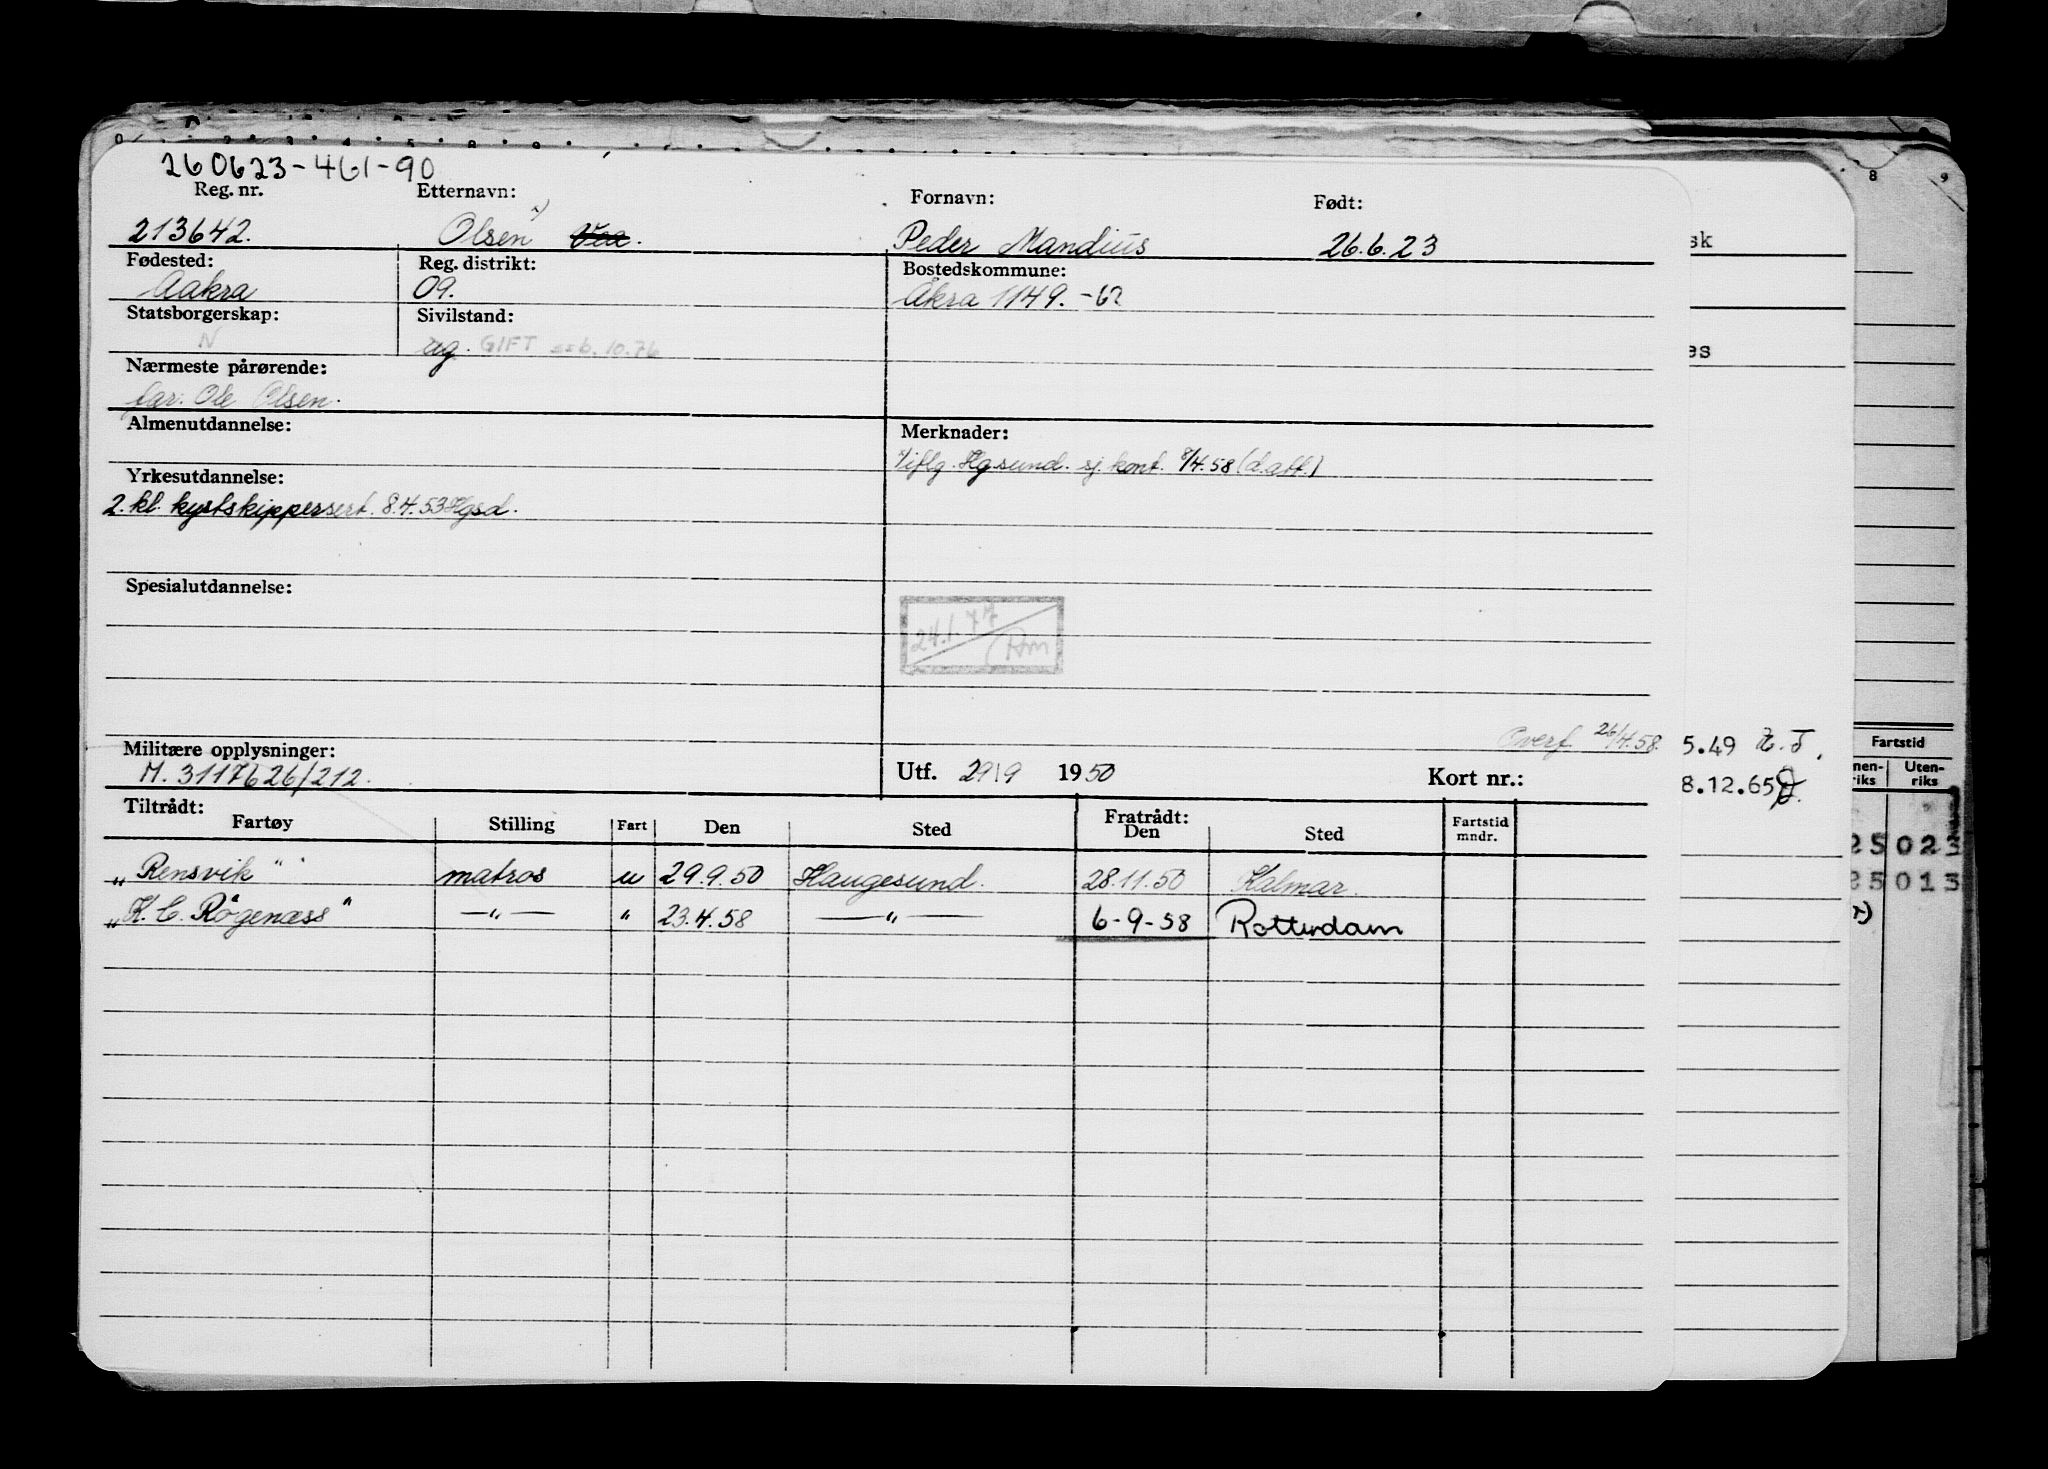 260623-461-90
Reg. nr. Etternavn: Fornavn: Født:
213642. Olsen x) Vea. Peder Mandius 26.6.23
Fødested: Reg. distrikt: Bostedskommune:
Aakra 09. Åkra 1149. -62
Statsborgerskap: Sivilstand:
N ug. GIFT 10.76
Nærmeste pårørende:
far: Ole Olsen.
Almenutdannelse: Merknader:
x/ iflg. Hgsund. sj. kont. 8/4.58 (d.att.)
Yrkesutdannelse:
2. kl. kystskippersert. 8.4.53 Hgsd.
Spesialutdannelse:
24.1.77
Overf. 26/4.58.
5.49
Militære opplysninger: Utf. 29/9 1950 Kort nr.:
M. 3117626/212.
8.12.65
Tiltrådt: Fratrådt:
Fartøy Stilling Fart Den Sted Den Sted Fartstid mndr.
„Rensvik" matros u 29.9.50 Haugesund. 28.11.50 Kalmar.
„K. C. Røgenæss" —„— " 23.4.58 —„— 6-9-58 Rotterdam
sk
es
8 9
Fartstid
nen-riks Uten-riks
25 023
25 013